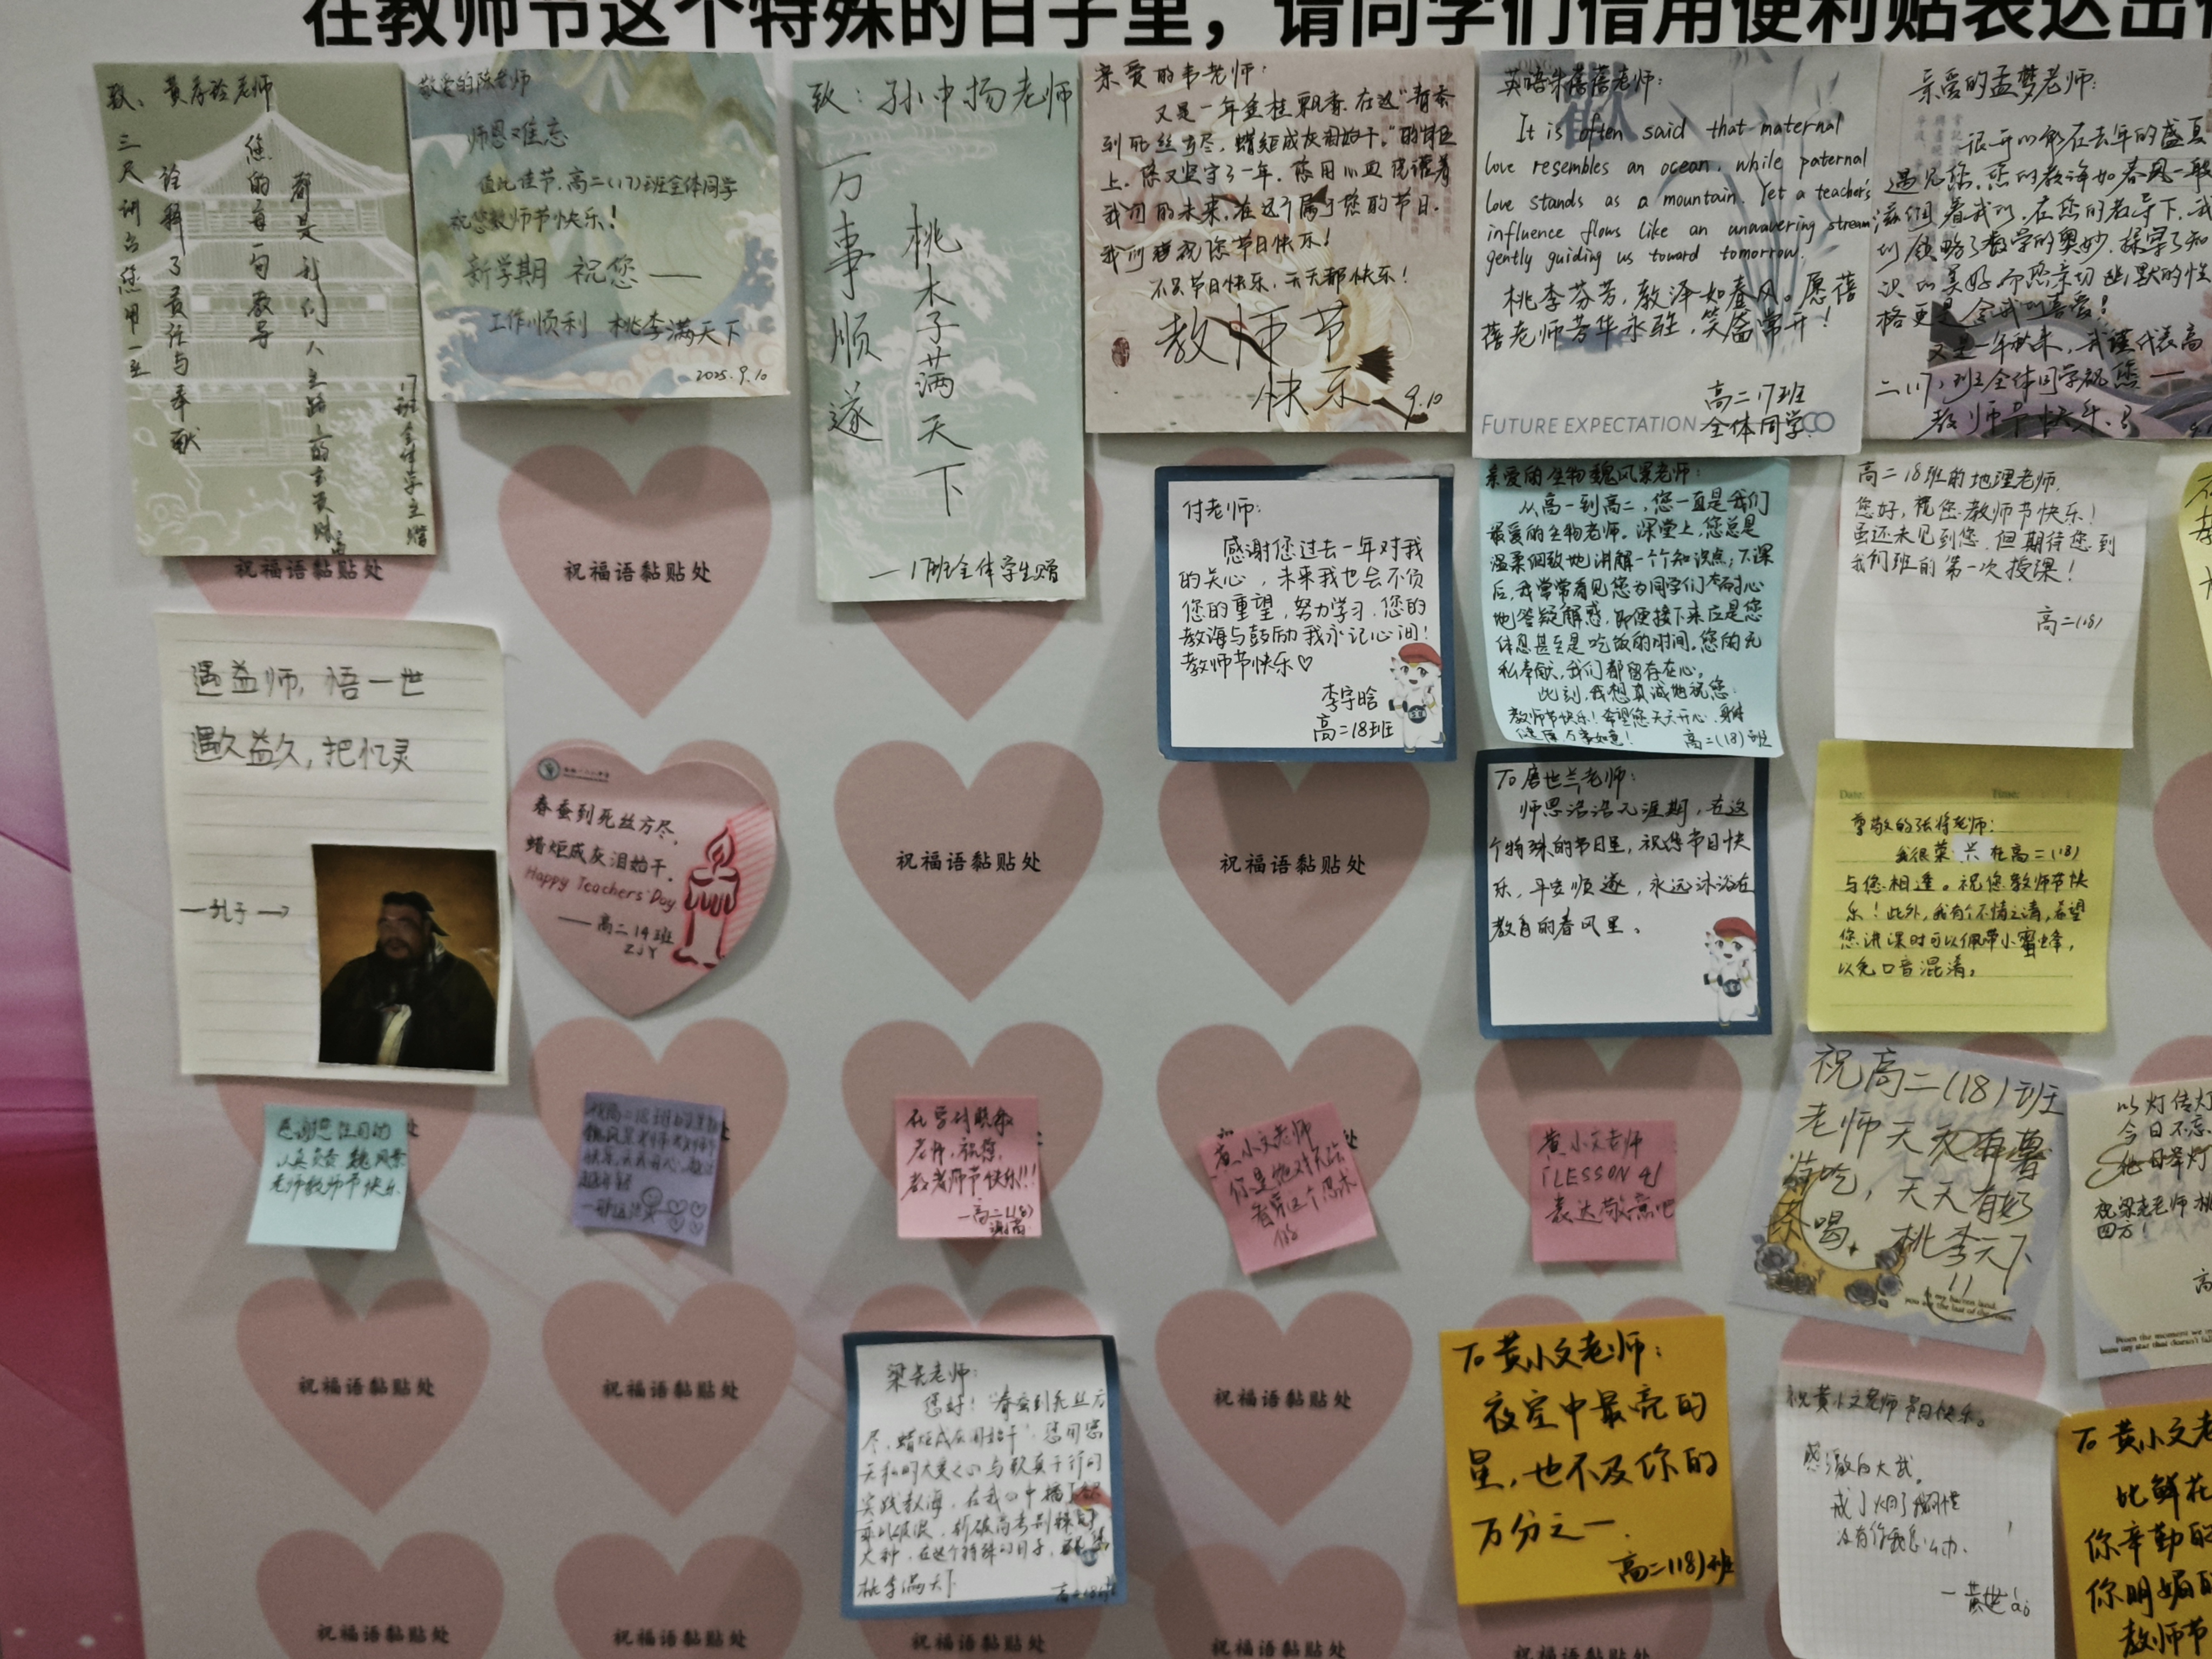 在教师节这个特殊的日子里，请同学们借用便利贴表达出
致：黄彦玲老师
三尺讲台您用一生
诠释了责任与奉献
您的每一句教导
都是我们人生路上的宝贵财富
17班全体学生赠
敬爱的陈老师
师恩难忘
值此佳节，高二(17)班全体同学
祝您教师节快乐！
新学期 祝您——
工作顺利 桃李满天下
2025.9.10
致：孙中扬老师
万事顺遂
桃木子满天下
—17班全体学生赠
亲爱的韦老师：
又是一年金桂飘香，在这"春蚕
到死丝方尽，蜡炬成灰泪始干。"的岗位
上，您又坚守了一年，您用心血浇灌着
我们的未来，在这个属于您的节日，
我们谨祝您节日快乐！
不只节日快乐，天天都快乐！
教师节
快乐
9.10
英语朱蓓蓓老师：
It is often said that maternal
love resembles an ocean, while paternal
love stands as a mountain. Yet a teacher's
influence flows like an unwavering stream,
gently guiding us toward tomorrow.
桃李芬芳，教泽如春风。愿蓓
蓓老师芳华永驻，笑靥常开！
高二17班
全体同学
FUTURE EXPECTATION
亲爱的孟梦老师：
很开心能在去年的盛夏
遇见您，您的教诲如春风一般
滋润着我们，在您的教导下，我
们领略了数学的奥妙，探寻了知
识的美好，而您亲切幽默的性
格更是令我们喜爱！
又是一年秋来，我谨代表高
二(17)班全体同学祝您——
教师节快乐！
付老师：
感谢您过去一年对我
的关心，未来我也会不负
您的重望，努力学习，您的
教诲与鼓励我永记心间！
教师节快乐♡
李宇晗
高二18班
亲爱的生物魏风景老师：
从高一到高二，您一直是我们
最爱的生物老师。课堂上，您总是
温柔细致地讲解一个个知识点；下课
后，我常常看见您为同学们耐心
地答疑解惑，即便接下来应是您
休息甚至是吃饭的时间。您的无
私奉献，我们都留存在心。
此刻，我想真诚地祝您：
教师节快乐！希望您天天开心，身体
健康，万事如意！
高二(18)班
高二18班的地理老师，
您好，祝您教师节快乐！
虽还未见到您，但期待您到
我们班的第一次授课！
高二(18)
祝福语黏贴处
祝福语黏贴处
遇益师，悟一世
遇久益久，把忆灵
—孔子→
春蚕到死丝方尽，
蜡炬成灰泪始干。
Happy Teachers' Day
——高二14班
ZJY
祝福语黏贴处
祝福语黏贴处
To 唐世兰老师：
师恩浩浩无涯期，在这
个特殊的节日里，祝您节日快
乐，平安顺遂，永远沐浴在
教育的春风里。
Date:
Time:
尊敬的张老师：
我很荣兴在高二(18)
与您相逢。祝您教师节快
乐！此外，我有个不情之请，希望
您讲课时可以佩带小蜜蜂，
以免口音混淆。
认真负责 魏风景
老师教师节快乐
老师，祝您，
教师节快乐!!!
—高二(18)
黄小文老师
黄小文老师
「LESSON 4」
表达敬意吧
祝高二(18)班
老师天天有薯
条吃，天天有奶
茶喝，桃李天下
!!
以灯传灯
今日不忘
他日举灯
祝梁老师桃
四方！
祝福语黏贴处
祝福语黏贴处
祝福语黏贴处
梁老师：
您好！"春蚕到死丝方
尽，蜡炬成灰泪始干"，您用您
无私的大爱之心与认真干行的
实践教诲，在我心中播了
乘风破浪，斩破高考荆棘的
火种，在这个特殊的日子，祝您
桃李满天下
To 黄小文老师：
夜空中最亮的
星，也不及你的
万分之一.
高二(18)班
祝黄小文老师节日快乐。
没有你我怎么办.
To 黄小文老
比鲜花
你辛勤的
你明媚的
教师节
祝福语黏贴处
祝福语黏贴处
祝福语黏贴处
祝福语黏贴处
祝福语黏贴处